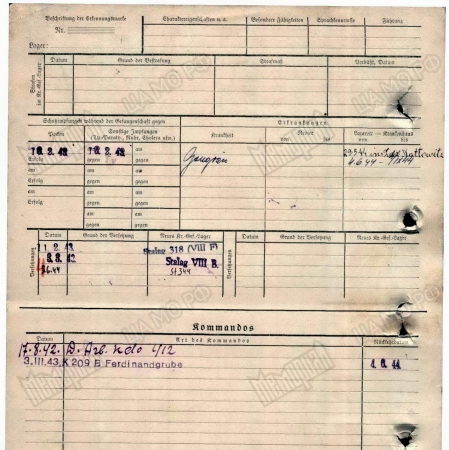 Beschreibung der Erkennungsmarke
Nr.
Lager:
Charaktereigenschaften u. ä.
Besondere Fähigkeiten
Sprachkenntnisse
Führung
Strafen im Kr.-Gef.-Lager
Datum
Grund der Bestrafung
Strafmaß
Verbüßt, Datum
Schutzimpfungen während der Gefangenschaft gegen
Erkrankungen
Pocken
Sonstige Impfungen
(Ty.-Paraty., Ruhr, Cholera usw.)
Krankheit
Revier
Lazarett — Krankenhaus
16. 2. 42. 16. 2. 42. am
Erfolg gegen gegen
am am am
Erfolg gegen gegen
am am am
Erfolg gegen gegen
am am
gegen gegen
29.5.44 Kattowitz
4.6.44
Versetzungen
Datum
Grund der Versetzung
Neues Kr.-Gef.-Lager
Versetzungen
Datum
Grund der Versetzung
Neues Kr.-Gef.-Lager
Stalag 318 (VIII F)
8. 8. 42.
Stalag VIII B.
3.6.44
St 344
Kommandos
Datum
Art des Kommandos
Rückgabedatum
17.8.42. D. Arb. Kdo
3. III. 43. K 209 B Ferdinandgrube
4. 6. 44
ЦАМО РФ